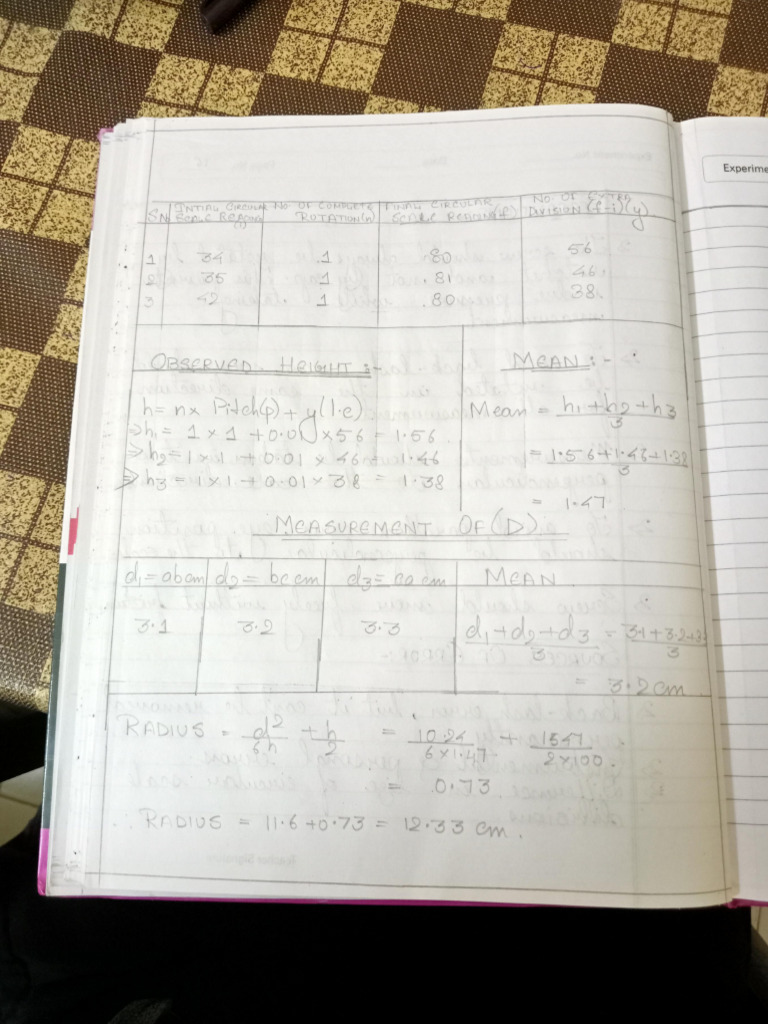 Experime
S.N INTIAL CIRCULAR SCALE READING (i) NO. OF COMPLETE ROTATION(n) FINAL CIRCULAR SCALE READING(f) NO. OF EXTRA DIVISION (f-i)(y)
1 34 1 80 56
2 35 1 .81 46
3 42 1 .80 38.
OBSERVED HEIGHT :-
MEAN :-
h = n x Pitch(p) + y(l.c)
⇒ h1 = 1 x 1 + 0.01 x 56 = 1.56
⇒ h2 = 1 x 1 + 0.01 x 46 = 1.46
⇒ h3 = 1 x 1 + 0.01 x 38 = 1.38
Mean = h1 + h2 + h3 / 3
= 1.56 + 1.46 + 1.38 / 3
= 1.47
MEASUREMENT OF (D) :-
d1 = ab cm d2 = bc cm d3 = ca cm MEAN
3.1 3.2 3.3 d1 + d2 + d3 / 3 = 3.1 + 3.2 + 3.3 / 3
= 3.2 cm
RADIUS = d² / 6h + h / 2 = 10.24 / 6 x 1.47 + / 2 x 100
= 0.73
∴ RADIUS = 11.6 + 0.73 = 12.33 cm.